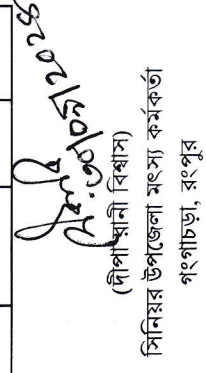 ৩০/০৬/২০২৪
(দীপা রানী বিশ্বাস)
সিনিয়র উপজেলা মৎস্য কর্মকর্তা
গংগাচড়া, রংপুর